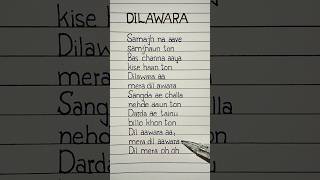 DILAWARA
Samajh na aave
samjhaun ton
Bas channa aaya
kise haan ton
Dilawara aa
mera dil awara
Sangda ae challa
nehde aaun ton
Darda ae tainu
billo khon ton
Dil aawara aa,
mera dil aawara
Dil mera oh oh
kise
Dila
mera
Sang
nehd
Dard